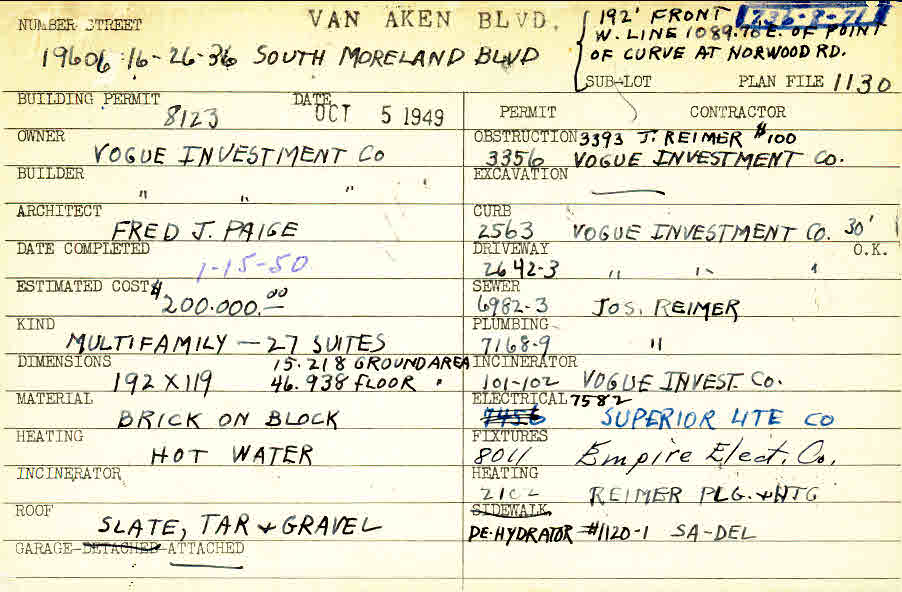 NUMBER STREET VAN AKEN BLVD.
19606-16-26-36 SOUTH MORELAND BLVD
192' FRONT 736-8-21
W. LINE 1089.76 E. OF POINT
OF CURVE AT NORWOOD RD.
SUB-LOT PLAN FILE 1130
BUILDING PERMIT DATE
8123 OCT 5 1949
OWNER
VOGUE INVESTMENT CO
BUILDER
" " "
ARCHITECT
FRED J. PAIGE
DATE COMPLETED
1-15-50
ESTIMATED COST $
200.000.00
KIND
MULTIFAMILY — 27 SUITES
DIMENSIONS 15.218 GROUND AREA
192 X 119 46.938 FLOOR "
MATERIAL
BRICK ON BLOCK
HEATING
HOT WATER
INCINERATOR
ROOF
SLATE, TAR & GRAVEL
GARAGE-DETACHED-ATTACHED
PERMIT CONTRACTOR
OBSTRUCTION 3393 J. REIMER $100
3356 VOGUE INVESTMENT CO.
EXCAVATION
CURB
2563 VOGUE INVESTMENT CO. 30'
DRIVEWAY O.K.
2642-3 " " "
SEWER
6982-3 JOS. REIMER
PLUMBING
7168-9 "
INCINERATOR
101-102 VOGUE INVEST. CO.
ELECTRICAL 7582
7456 SUPERIOR LITE CO
FIXTURES
8011 Empire Elect. Co.
HEATING
2102 REIMER PLG. & HTG
SIDEWALK
DE-HYDRATOR #1120-1 SA-DEL